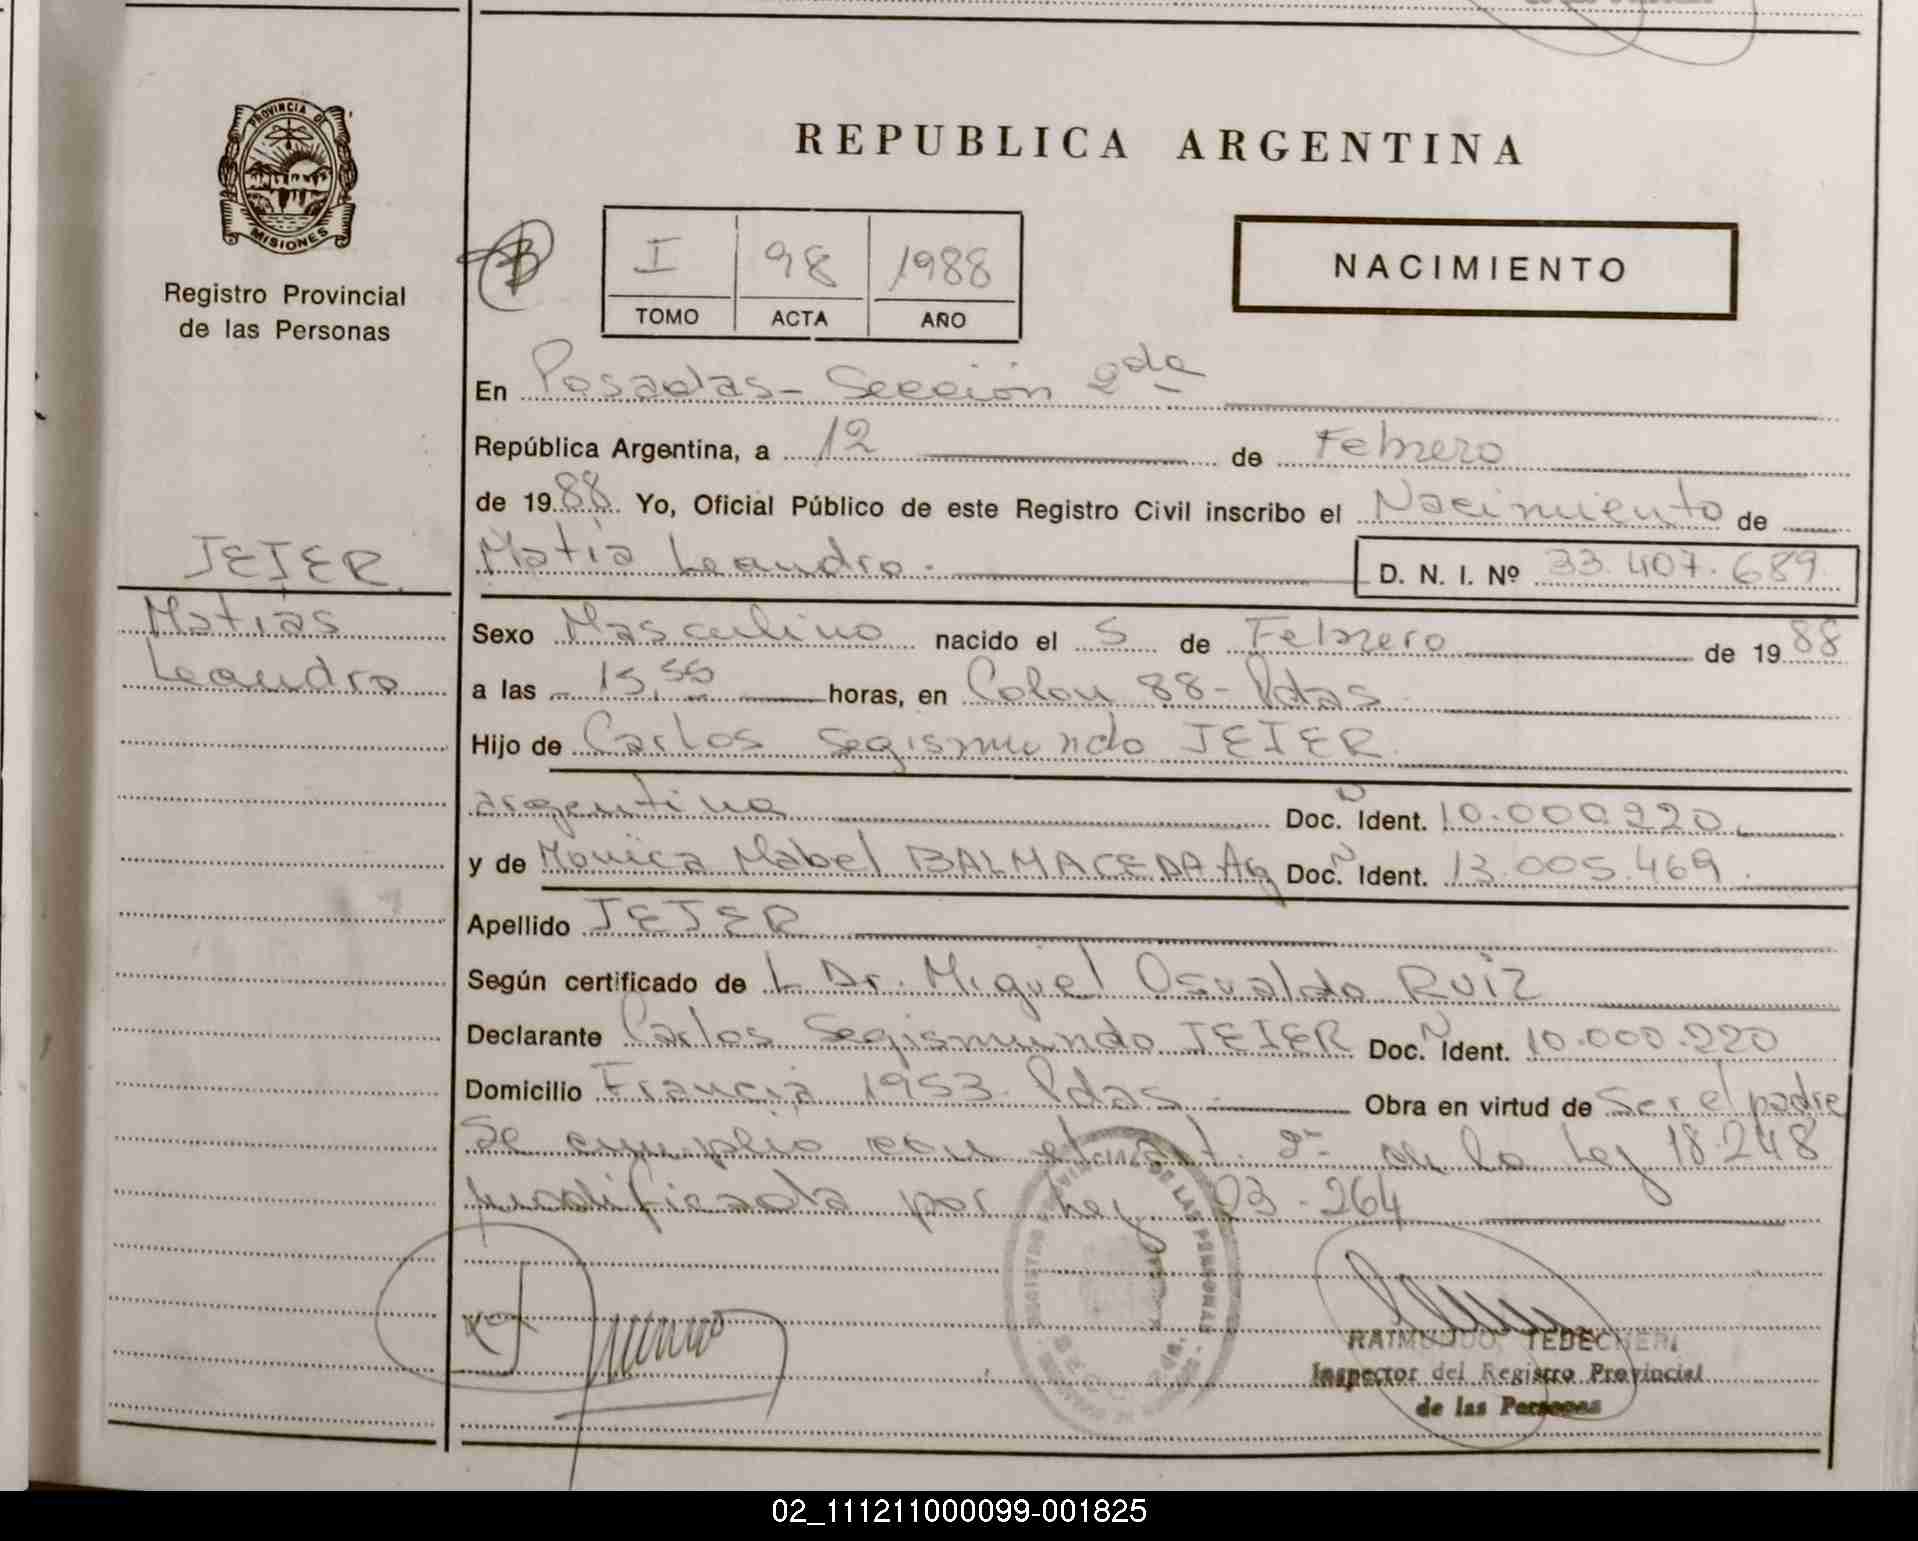 PROVINCIA D
MISIONES
Registro Provincial
de las Personas
REPUBLICA ARGENTINA
I 98 1988
TOMO ACTA AÑO
NACIMIENTO
En Posadas - Sección 2da
República Argentina, a 12 de Febrero
de 1988 Yo, Oficial Público de este Registro Civil inscribo el Nacimiento de
JEJER
Matia Leandro. D. N. I. Nº 33.407.689
Matias
Leandro
Sexo Masculino nacido el 5 de Febrero de 1988
a las 15,55 horas, en Colon 88 - Pdas
Hijo de Carlos Segismundo JEJER
argentino Doc. Ident. 10.000.220
y de Monica Mabel BALMACEDA Ag Doc. Ident. 13.005.469
Apellido JEJER
Según certificado de L Dr. Miguel Osvaldo RUIZ
Declarante Carlos Segismundo JEJER Doc. Ident. 10.000.220
Domicilio Francia 1953 Pdas Obra en virtud de Ser el padre
Se cumplio con el art. 2º de la Ley 18.248
modificada por Ley 23.264
REGISTRO DE LAS PERSONAS
RAIMUNDO TEDECHERI
Inspector del Registro Provincial
de las Personas
02_111211000099-001825